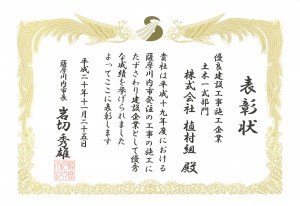 表彰状
優良建設工事施工企業
土木一式部門
株式会社 植村組 殿
貴社は平成十九年度における
薩摩川内市発注の工事の施工に
たずさわり建設企業として優秀
な成績を挙げられました
よってここに表彰します
平成二十年十一月二十五日
薩摩川内市長
岩切秀雄